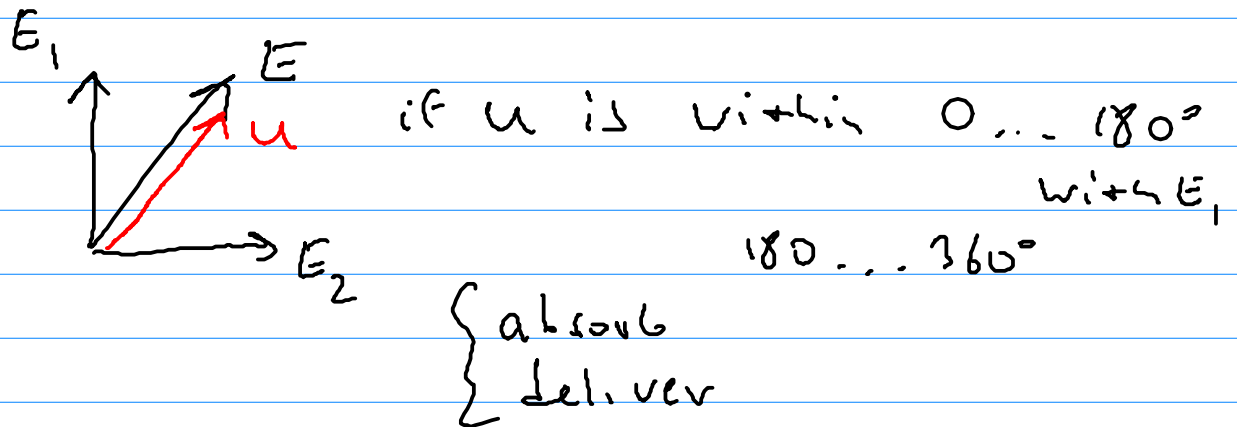 E₁
E
u
if u is within 0... 180°
with E₁
E₂
180... 360°
{ absorb
deliver